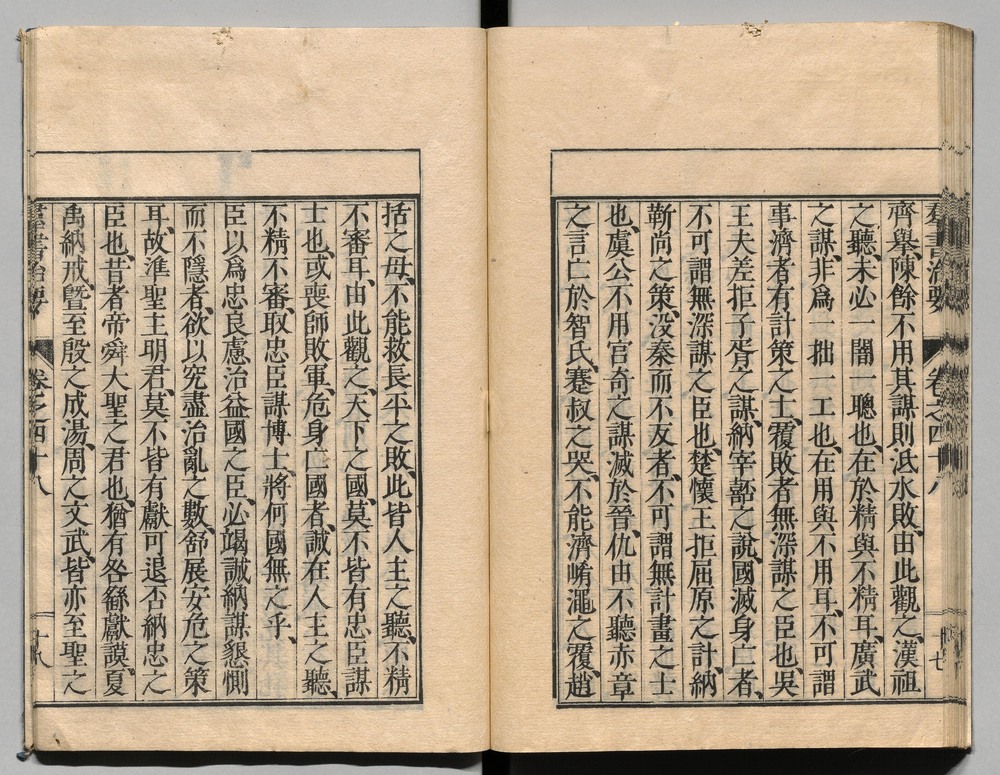 羣書治要 卷之四十八 十七
齊舉、陳餘不用其謀則泜水敗、由此觀之、漢祖
之聽、未必一闇一聰也、在於精與不精耳、廣武
之謀、非爲一拙一工也、在用與不用耳、不可謂
事濟者有計策之士、覆敗者無深謀之臣也、吳
王夫差拒子胥之謀、納宰嚭之說、國滅身亡者、
不可謂無深謀之臣也、楚懷王拒屈原之計、納
靳尚之策、没秦而不反者、不可謂無計畫之士
也、虞公不用官奇之謀、滅於晉、仇由不聽赤章
之言、亡於智氏、蹇叔之哭、不能濟崤澠之覆、趙
括之母、不能救長平之敗、此皆人主之聽、不精
不審耳、由此觀之、天下之國、莫不皆有忠臣謀
士也、或喪師敗軍、危身亡國者、誠在人主之聽、
不精不審、取忠臣謀博士、將何國無之乎、
臣以爲忠良慮治益國之臣、必竭誠納謀、懇惻
而不隱者、欲以究盡治亂之數、舒展安危之策
耳、故準聖主明君、莫不皆有獻可退否納忠之
臣也、昔者帝舜大聖之君也、猶有咎繇獻謨、夏
禹納戒、曁至殷之成湯、周之文武、皆亦至聖之
羣書治要 卷之四十八 十八